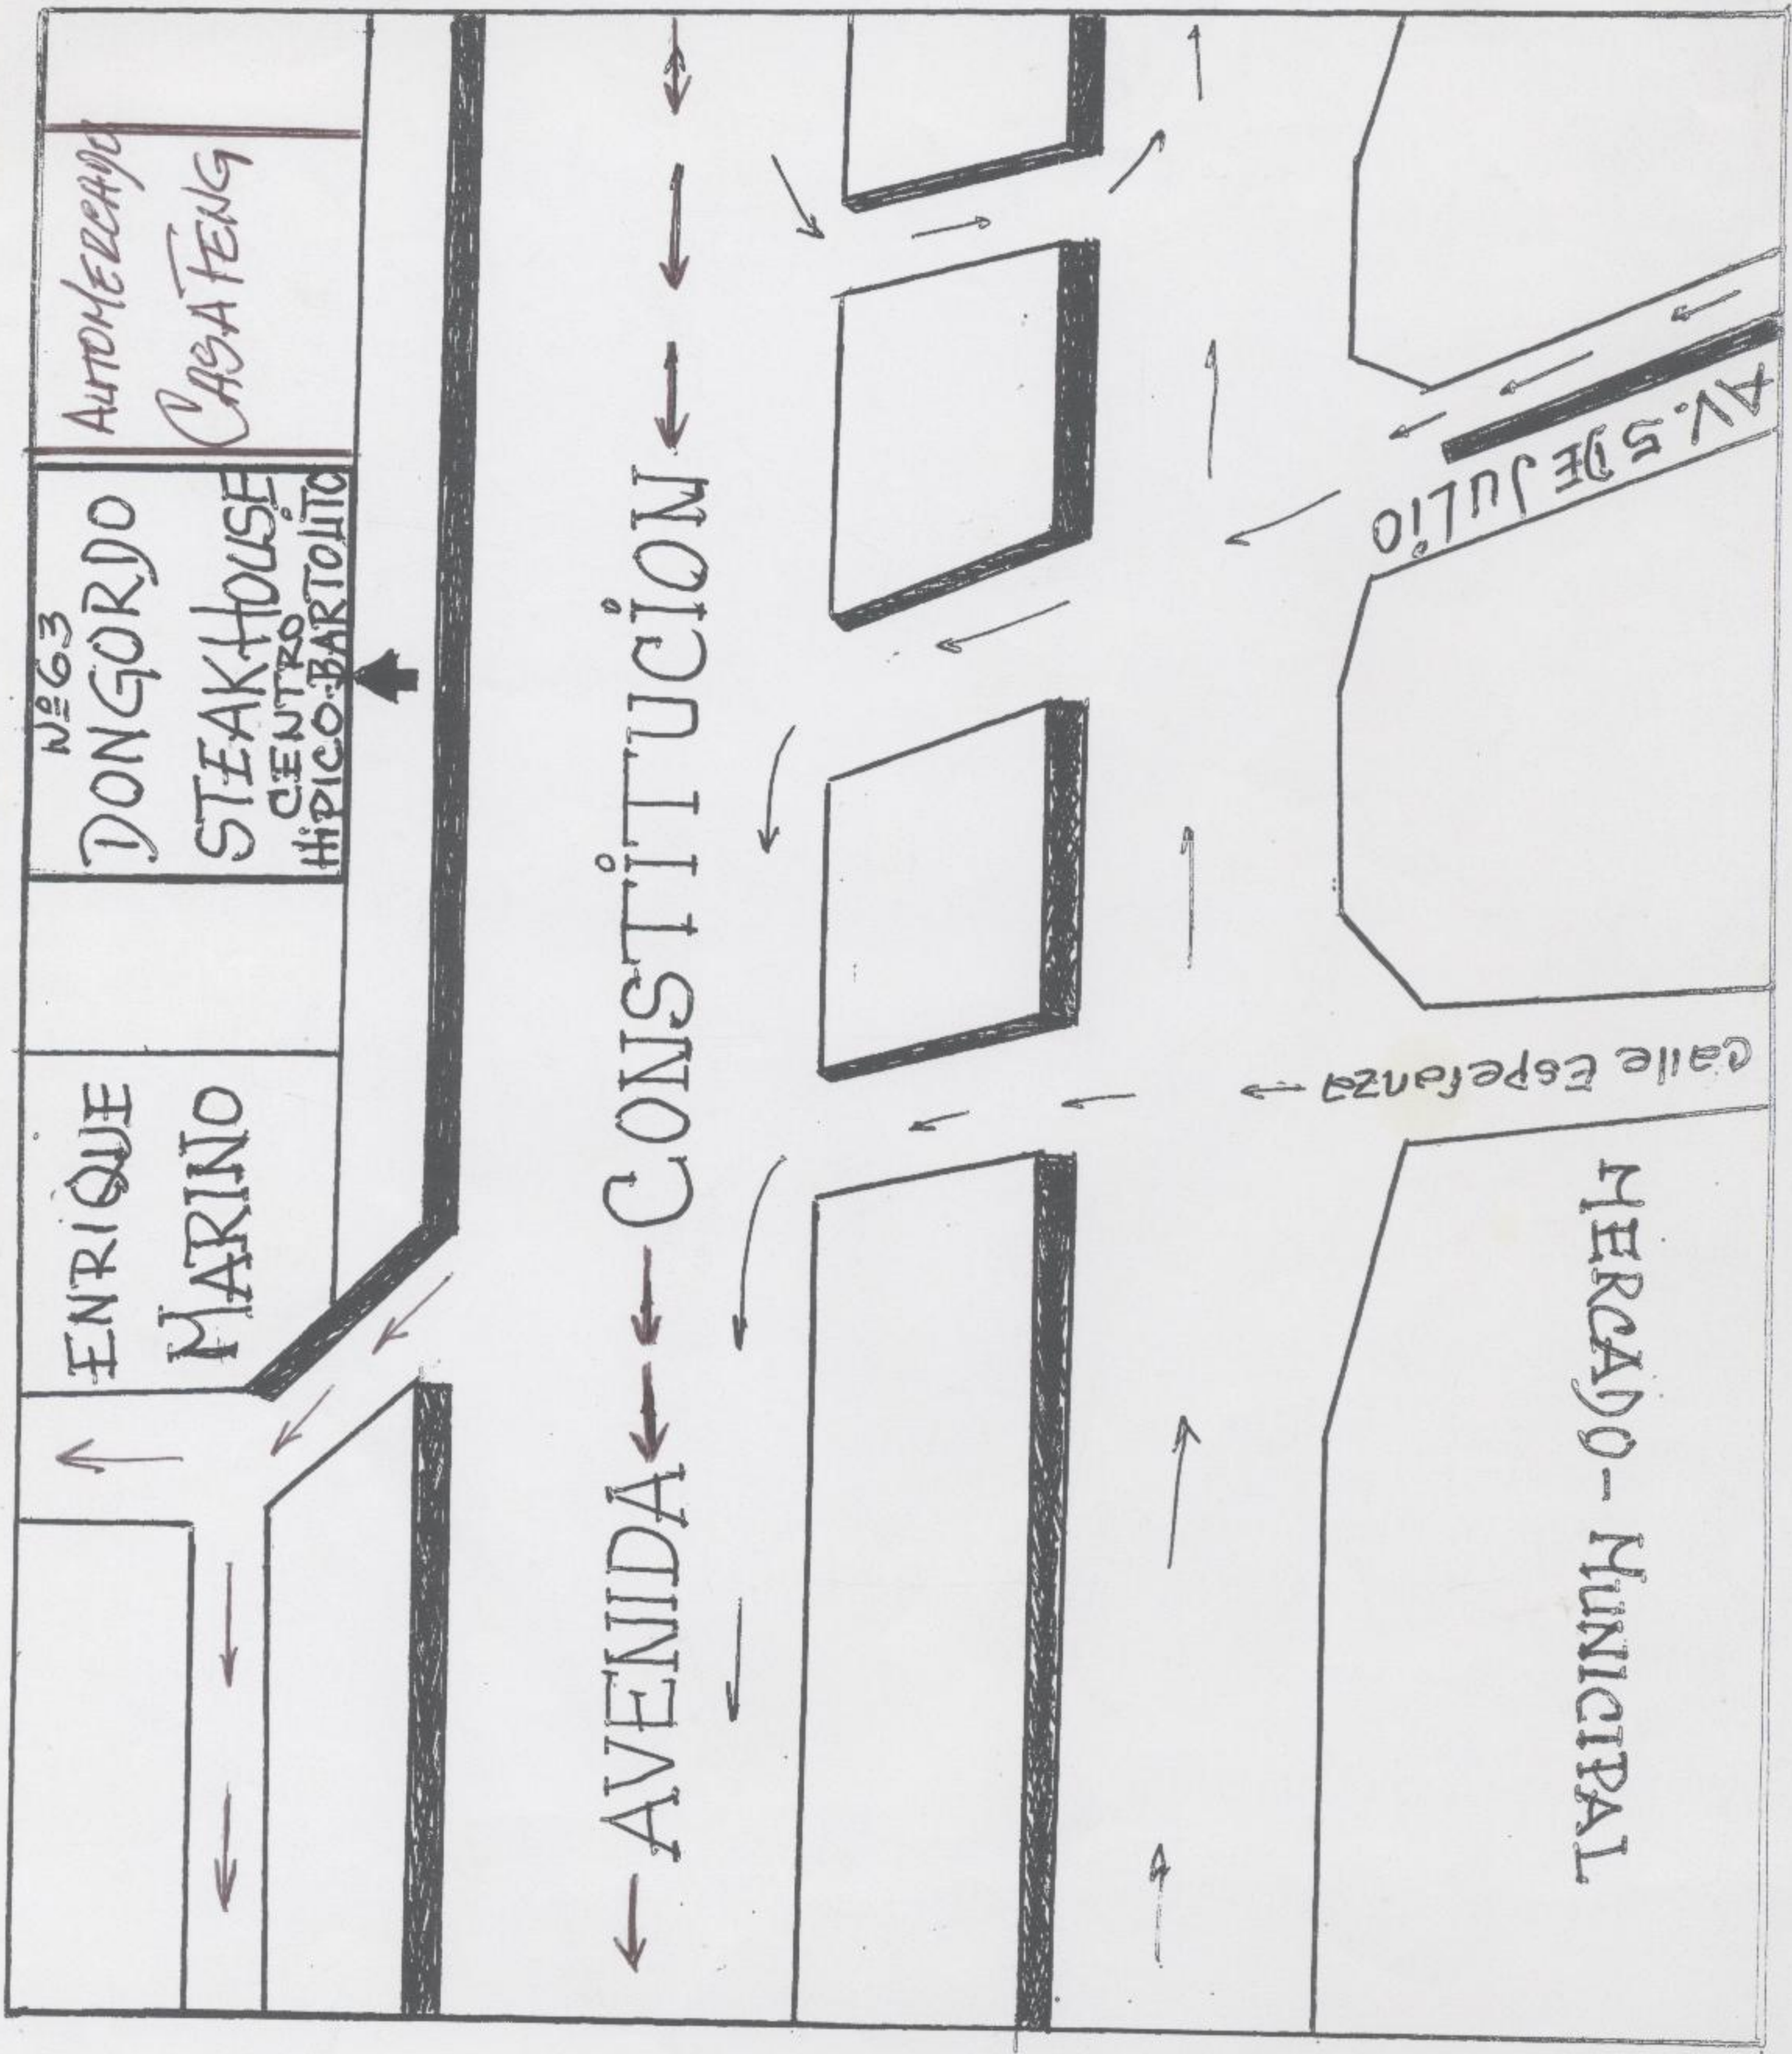 AUTOMERCADO
CASA FENG
Nº 63
DONGORDO
STEAKHOUSE
CENTRO
HIPICO-BARTOLITO
ENRIQUE
MARINO
AVENIDA CONSTITUCION
AV. 5 DE JULIO
Calle Esperanza
MERCADO - MUNICIPAL